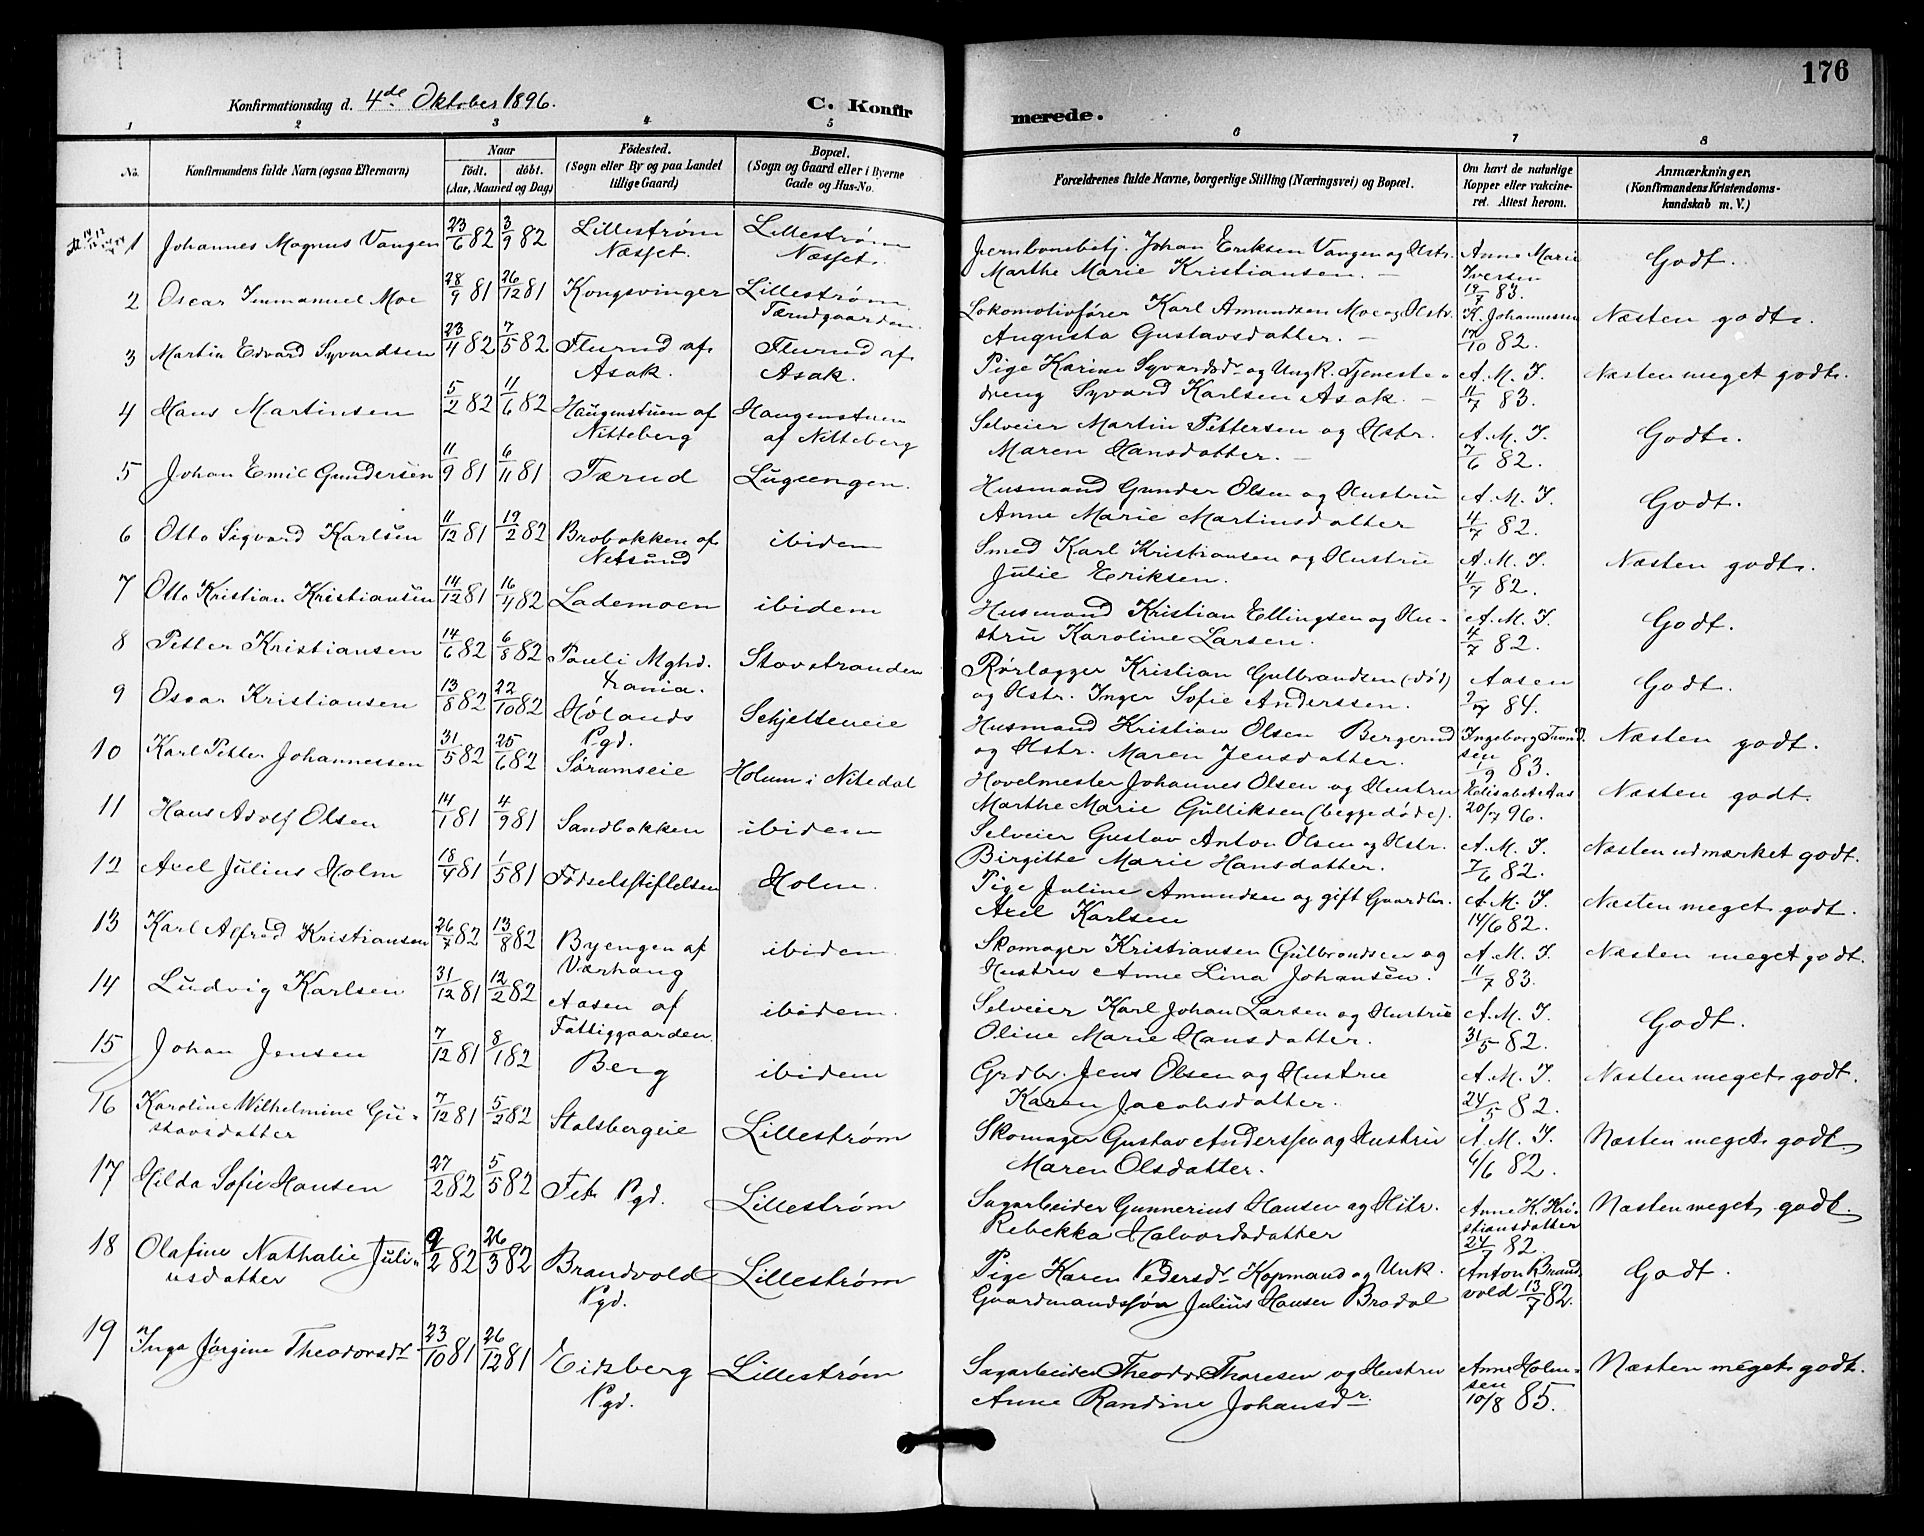 176
Konfirmationsdag d. 4de Oktober 1896.
C. Konfirmerede.
1 2 3 4 5 6 7 8
No.
Konfirmandens fulde Navn (ogsaa Efternavn)
Naar
født. døbt.
(Aar, Maaned og Dag)
Födested.
(Sogn eller By og paa Landet
tillige Gaard)
Bopæl.
(Sogn og Gaard eller i Byerne
Gade og Hus-No.
Forældrenes fulde Navne, borgerlige Stilling (Næringsvei) og Bopæl.
Om havt de naturlige
Kopper eller vakcine-
ret. Attest herom.
Anmærkninger.
(Konfirmandens Kristendoms-
kundskab m. V.)
1 Johannes Magnus Vangen 23/6 82 3/9 82 Lillestrøm Lillestrøm Jernbanebetj. Johan Eriksen Vangen og Hstr. Anne Marie Godt.
Næsset. Næsset. Marthe Marie Kristiansen. — Iversen
19/7 83.
2 Oscar Immanuel Moe 28/9 81 26/12 81 Kongsvinger Lillestrøm Lokomotivfører Karl Amundsen Moe og Hstr. K. Johannesen Næsten godt.
Tærudgaarden. Augusta Gustavsdatter. — 17/10 82.
3 Martin Edvard Syvardsen 23/4 82 7/5 82 Flurud af Flurud af Pige Karine Syvardsdr og Ungk. Tjeneste- A. M. I. Næsten meget godt.
Asak. Asak. dreng Syvard Karlsen Asak. — 11/7 83.
4 Hans Martinsen 5/2 82 11/6 82 Haugenstuen af Haugenstuen Selveier Martin Pettersen og Hstr. A. M. I. Godt.
Nitteberg af Nitteberg Maren Hansdatter. — 7/6 82.
5 Johan Emil Gundersen 11/9 81 6/11 81 Tærud Lugeengen. Husmand Gunder Olsen og Hustru A. M. I. Godt.
Anne Marie Martinsdatter 4/7 82.
6 Otto Sigvard Karlsen 11/12 81 19/2 82 Brobakken af ibidem Smed Karl Kristiansen og Hustru A. M. I. Næsten godt.
Netsund Julie Eriksen. 11/7 82.
7 Otto Kristian Kristiansen 14/12 81 16/4 82 Lademoen ibidem Husmand Kristian Ellingsen og Hu- A. M. I. Godt.
stru Karoline Larsen. 4/7 82.
8 Petter Kristiansen 14/6 82 6/8 82 Pauli Mghd. Stavstranden Rørlægger Kristian Gulbrandsen (død) Aasen Godt.
Krania. og Hstr. Inger Sofie Anderssen. 84.
9 Oscar Kristiansen 13/8 82 22/10 82 Hølands Schjetteneie Husmand Kristian Olsen Bergerud Ingeborg Næsten godt.
Pgd. og Hstr. Maren Jensdatter. 1/9 83.
10 Karl Petter Johannessen 31/5 82 25/6 82 Sørumseie Holum i Nitedal Hovelmester Johannes Olsen og Hustru Næsten godt.
Marthe Marie Gulliksen (begge døde). 96.
11 Hans Adolf Olsen 14/1 81 4/9 81 Sandbakken ibidem Selveier Gustav Anton Olsen og Hstr. A. M. I. Næsten udmærket godt.
Birgitte Marie Hansdatter. 7/6 82.
12 Axel Julius Holm 18/4 81 1/5 81 Fødselsstiftelsen Holm. Pige Juline Amundsen og gift Gaardbr. A. M. I. Næsten meget godt.
Axel Karlsen 14/6 82.
13 Karl Alfred Kristiansen 26/7 82 13/8 82 Byengen af ibidem. Skomager Kristiansen Gulbrandsen og A. M. I. Næsten meget godt.
Værhaug Hustru Anne Lina Johansen. 11/7 83.
14 Ludvig Karlsen 31/12 81 12/2 82 Aasen af ibidem. Selveier Karl Johan Larsen og Hustru A. M. I. Godt.
Fattiggaarden. Oline Marie Hansdatter. 31/5 82.
15 Johan Jensen 7/12 81 8/1 82 Berg ibidem Grdbr. Jens Olsen og Hustru A. M. I. Næsten meget godt.
Karen Jacobsdatter. 24/5 82.
16 Karoline Wilhelmine Gu- 7/12 81 5/2 82 Stalsbergeie Lillestrøm Skomager Gustav Anderssen og Hustru A. M. I. Næsten meget godt
stavsdatter Maren Olsdatter. 6/6 82.
17 Hilda Sofie Hansen 27/2 82 5/5 82 Fet Pgd. Lillestrøm Sagarbeider Gunnerius Hansen og Hstr. Anne K. Kri- Næsten meget godt.
Rebekka Halvordsdatter stiansdatter
24/7 82.
18 Olafine Nathalie Juli- 9/2 82 26/3 82 Brandvold Lillestrøm Pige Karen Pedersdr Kopmand og Unk. Anton Brand- Godt.
usdatter Pgd. Gaardmandssøn Julius Hansen Brodal vold 13/7 82.
19 Inga Jørgine Theodorsdr 23/10 81 26/12 81 Eidsberg Lillestrøm Sagarbeider Theodor Thoresen og Hustru Anne Holm- Næsten meget godt.
Pgd. Anne Randine Johansdr. sen
10/8 85.